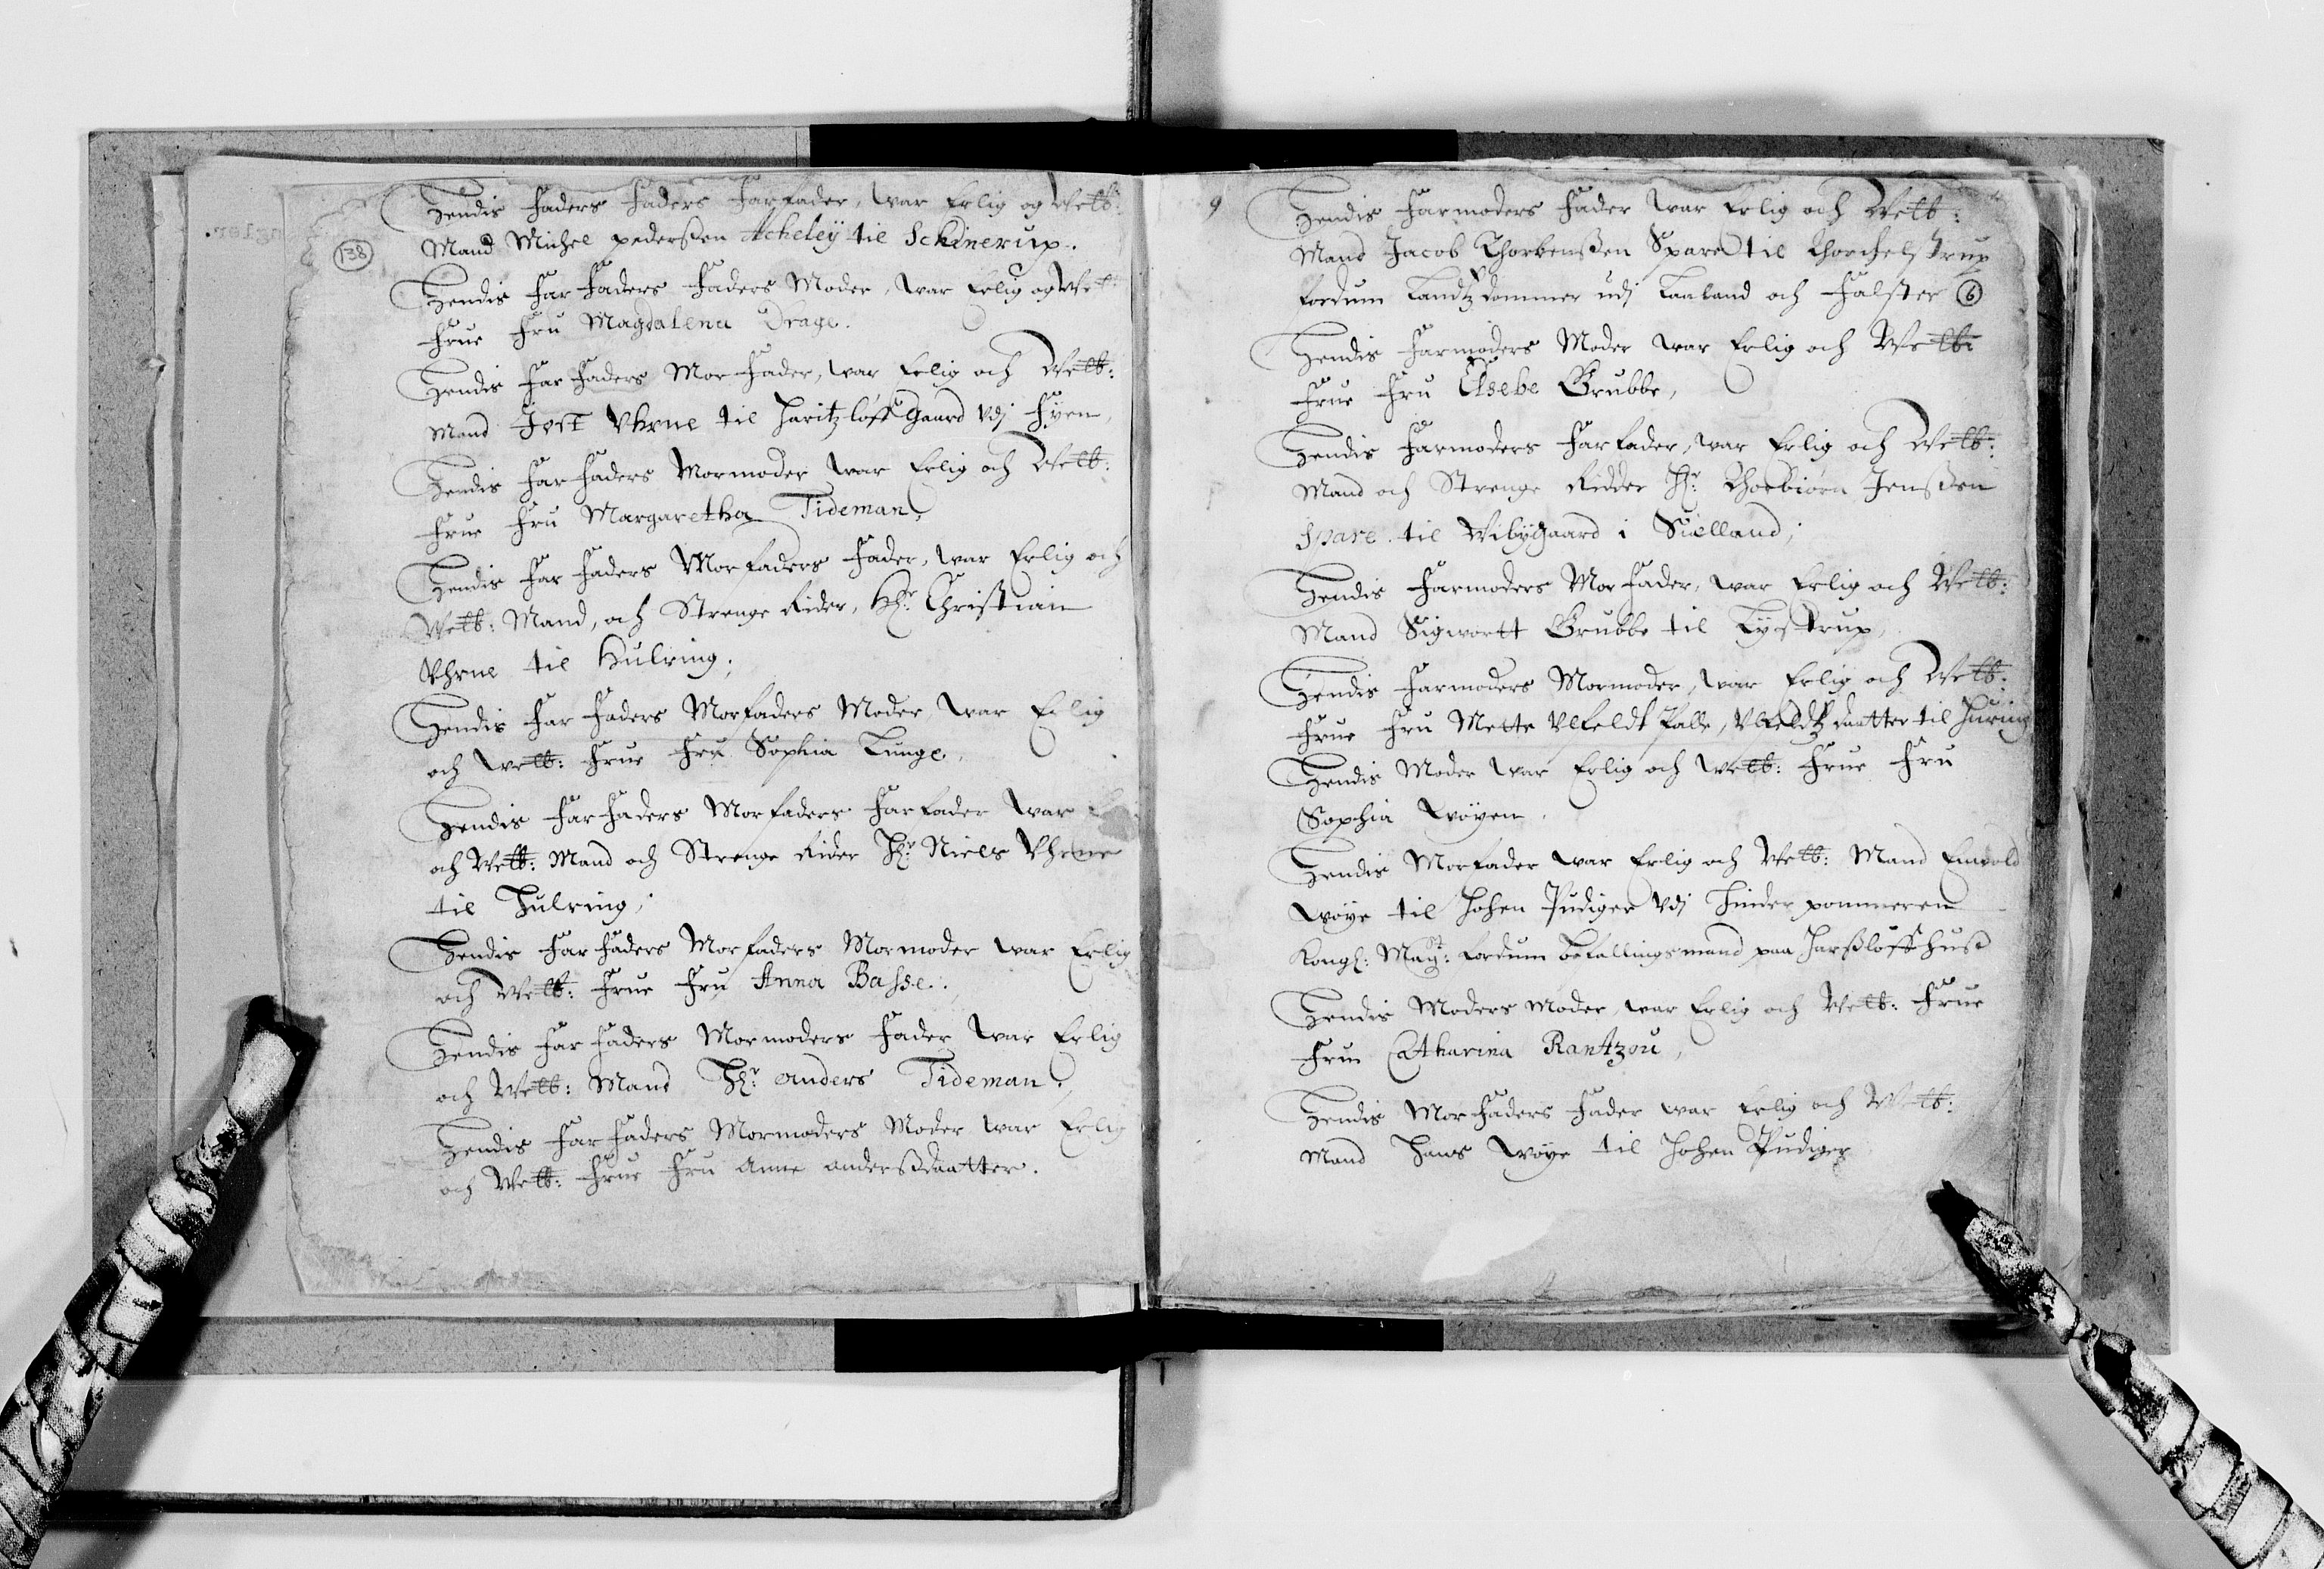 Hendis Faders Faders Farfader, war Erlig og Welb:
Mand Michel pederßen Acheleÿ til Schinerup.
138
Hendis Far Faders Faders Moder, war Erlig og Welb:
Frue Fru Magdalena Drage.
Hendis Far Faders Mor Fader, war Erlig och Welb:
Mand Jost Vhrne til Haritzløff Gaard vdj Fÿen,
Hendis Far Faders Mormoder war Erlig och Welb:
Frue Fru Margaretha Tideman,
Hendis Far Faders Morfaders Fader, war Erlig och
Welb: Mand, och Strenge Rider, Hr: Christian
Vhrne til Hulring;
Hendis Far Faders Morfaders Moder, war Erlig
och Welb: Frue Fru Sophia Lunge,
Hendis Far Faders Morfaders Farfader war
och Welb: Mand och Strenge Rider Hr: Niels Vhrne
til Hulring;
Hendis Far Faders Morfaders Mormoder war Erlig
och Welb: Frue Fru Anna Basse.
Hendis Far Faders Mormoders Fader war Erlig
och Welb: Mand Hr: Anders Tideman;
Hendis Far Faders Mormoders Moder war Erlig
och Welb: Frue Fru Anne Anderßdaatter.
9
Hendis Farmoders Fader war Erlig och Welb:
Mand Jacob Thorbenßen Spare til Thorchelstrup
fordum Landtzdommer udj Laaland och Falster
6
Hendis Farmoders Moder war Erlig och Welb:
Frue Fru Elsebe Grubbe,
Hendis Farmoders Farfader, war Erlig och Welb:
Mand och Strenge Ridder Hr: Thorbiørn Jenßen
Spare til Wibÿgaard i Siælland;
Hendis Farmoders Mor Fader, war Erlig och Welb:
Mand Sigwortt Grubbe til Lÿstrup,
Hendis Farmoders Mormoder, war Erlig och Welb:
Frue Fru Mette Vlfeldt Palle, Vlfeldtz daatter til Hüring
Hendis Moder war Erlig och Welb: Frue Fru
Sophia Woÿen,
Hendis Morfader war Erlig och Welb: Mand Emvold
Woÿe til Hohen Pudiger vdj Hinder pommeren
Kongl: Maÿst: fordum befallingsmand paa Harßløff huß
Hendis Moders Moder, war Erlig och Welb: Frue
Fru Catharina Rantzou,
Hendis Mor Faders Fader war Erlig och Welb:
Mand Hans Woÿe til Hohen Pudiger